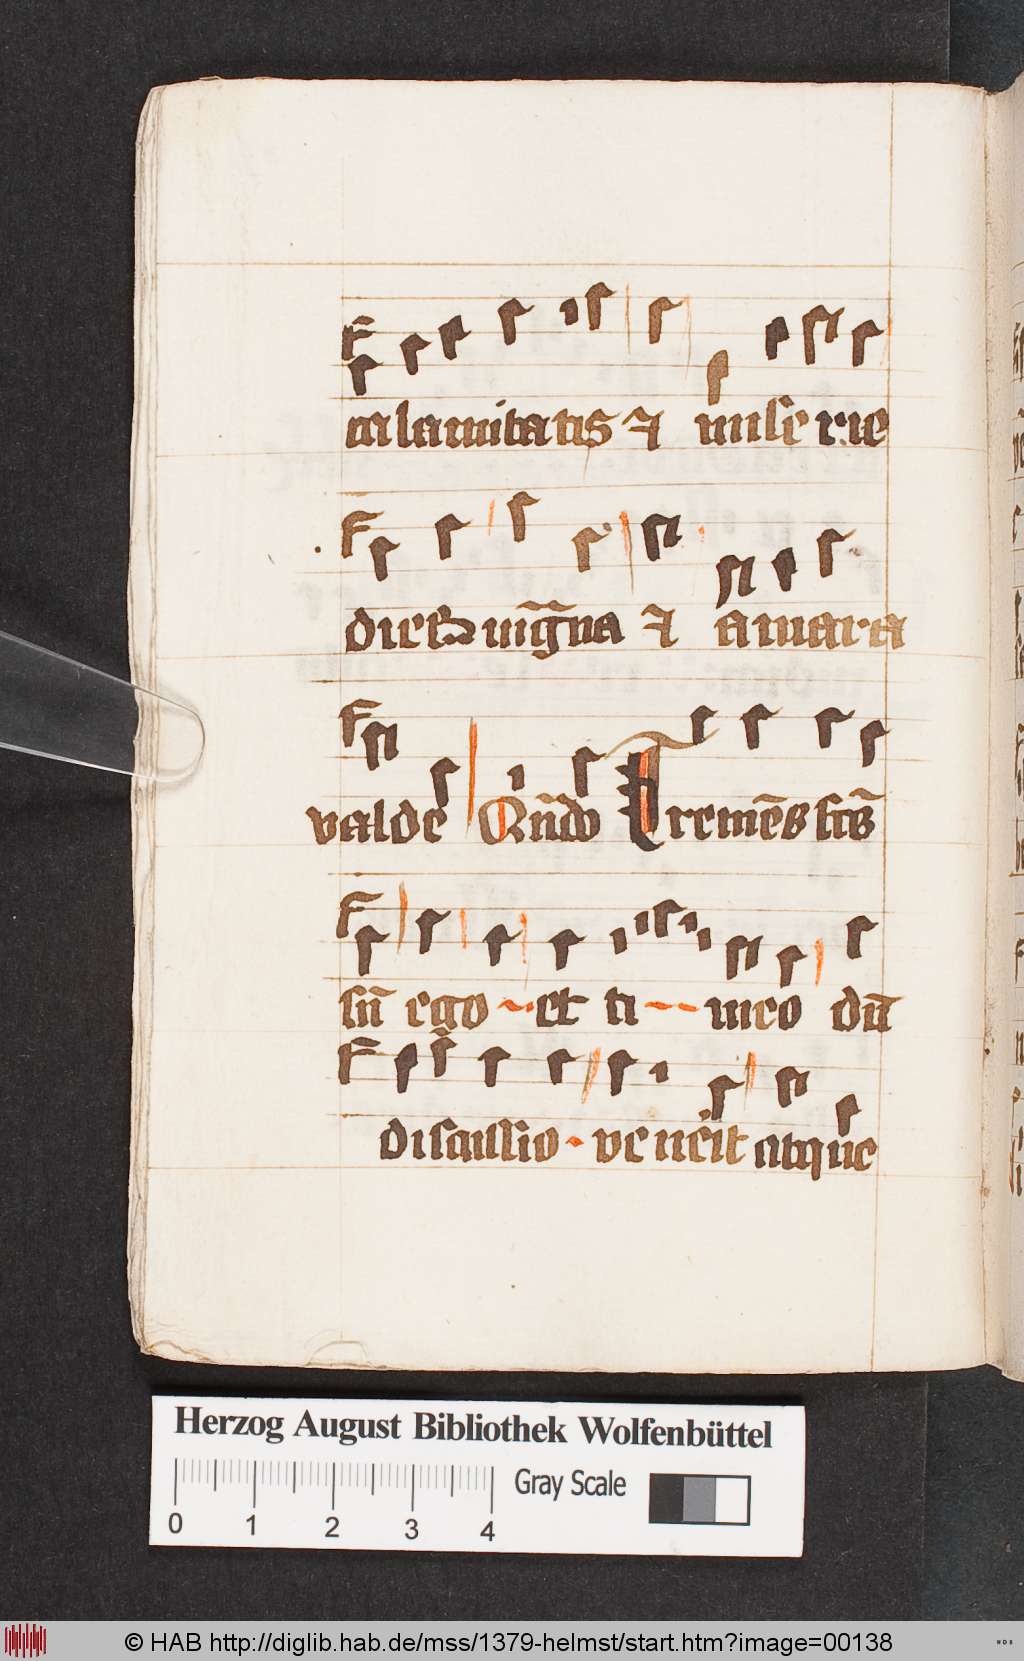 calamitatis ⁊ miserie
dies mag̃na ⁊ amara
valde Qñdo Tremẽs fctꝰ
sũ ego et ti meo dũ
discussio venẽit atque
Herzog August Bibliothek Wolfenbüttel
Gray Scale
0 1 2 3 4
© HAB http://diglib.hab.de/mss/1379-helmst/start.htm?image=00138